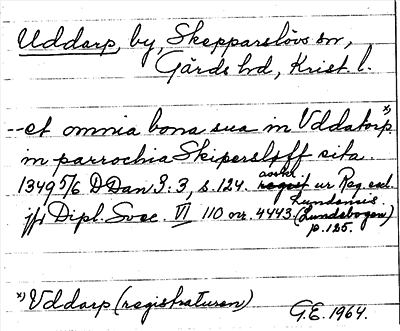 Uddarp, by, Skepparslövs sn,
Gärds hd, Krist. l.
-- et omnia bona sua in Vddatorp x)
in parrochia Skipersløff sita.
1349 5/6 D Dan 3:3, s. 124. avskr. ur Reg. eccl.
Lundensis
jfr Dipl. Svec. VI 110 nr. 4443. (Lundebogen)
p. 125.
x) Vddarp (registraturen)
G.E. 1964.